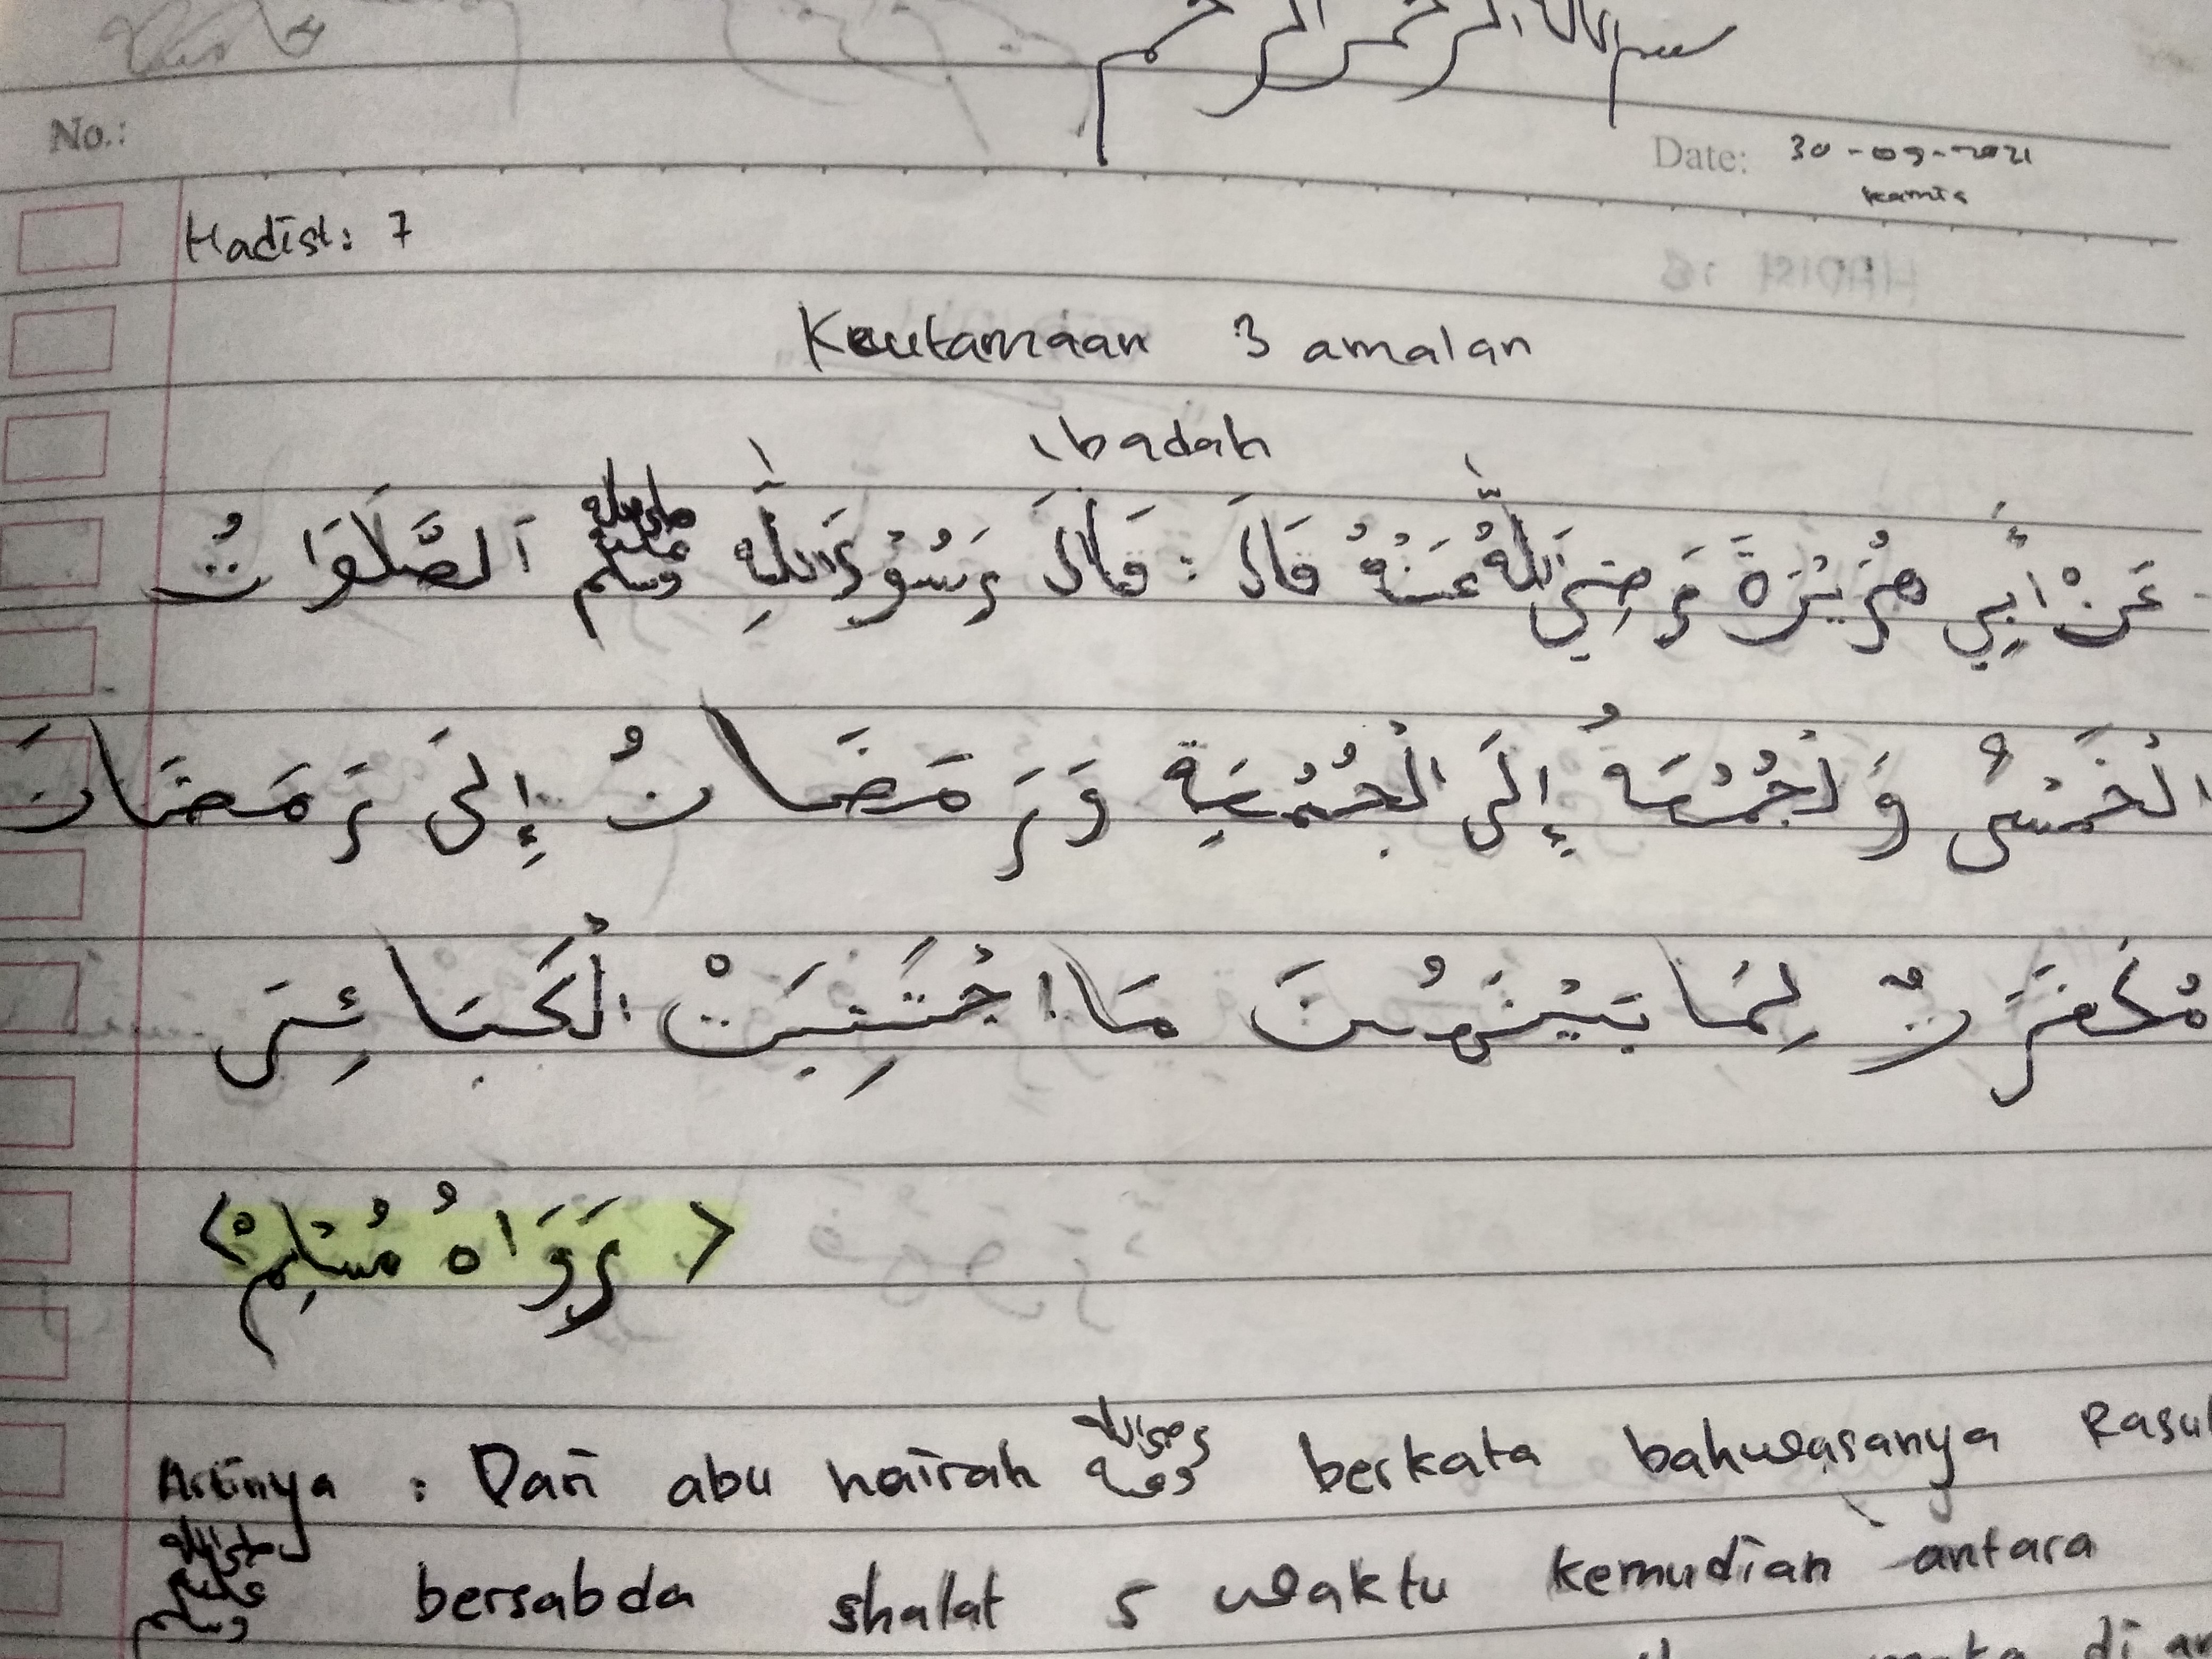 بسم الله الرحمن الرحيم
No.:
Date: 30-09-2021
kamis
Hadist: 7
Keutamaan 3 amalan
Ibadah
عَنْ أَبِي هُرَيْرَةَ رَضِيَ اللّٰهُ عَنْهُ قَالَ : قَالَ رَسُوْلُ اللّٰهِ صلى الله عليه وسلم اَلصَّلَوَاتُ
الْخَمْسُ وَلْجُمُعَةُ إِلَى الْجُمُعَةِ وَرَمَضَانُ إِلَى رَمَضَانَ
مُكَفِّرَتٌ لِمَا بَيْنَهُنَ مَا اجْتَنِبَتْ الْكَبَائِرَ
< رَوَاهُ مُسْلِمْ >
Artinya : Dari abu hairah berkata bahwasanya Rasul
صلى الله عليه وسلم bersabda shalat 5 waktu kemudian antara